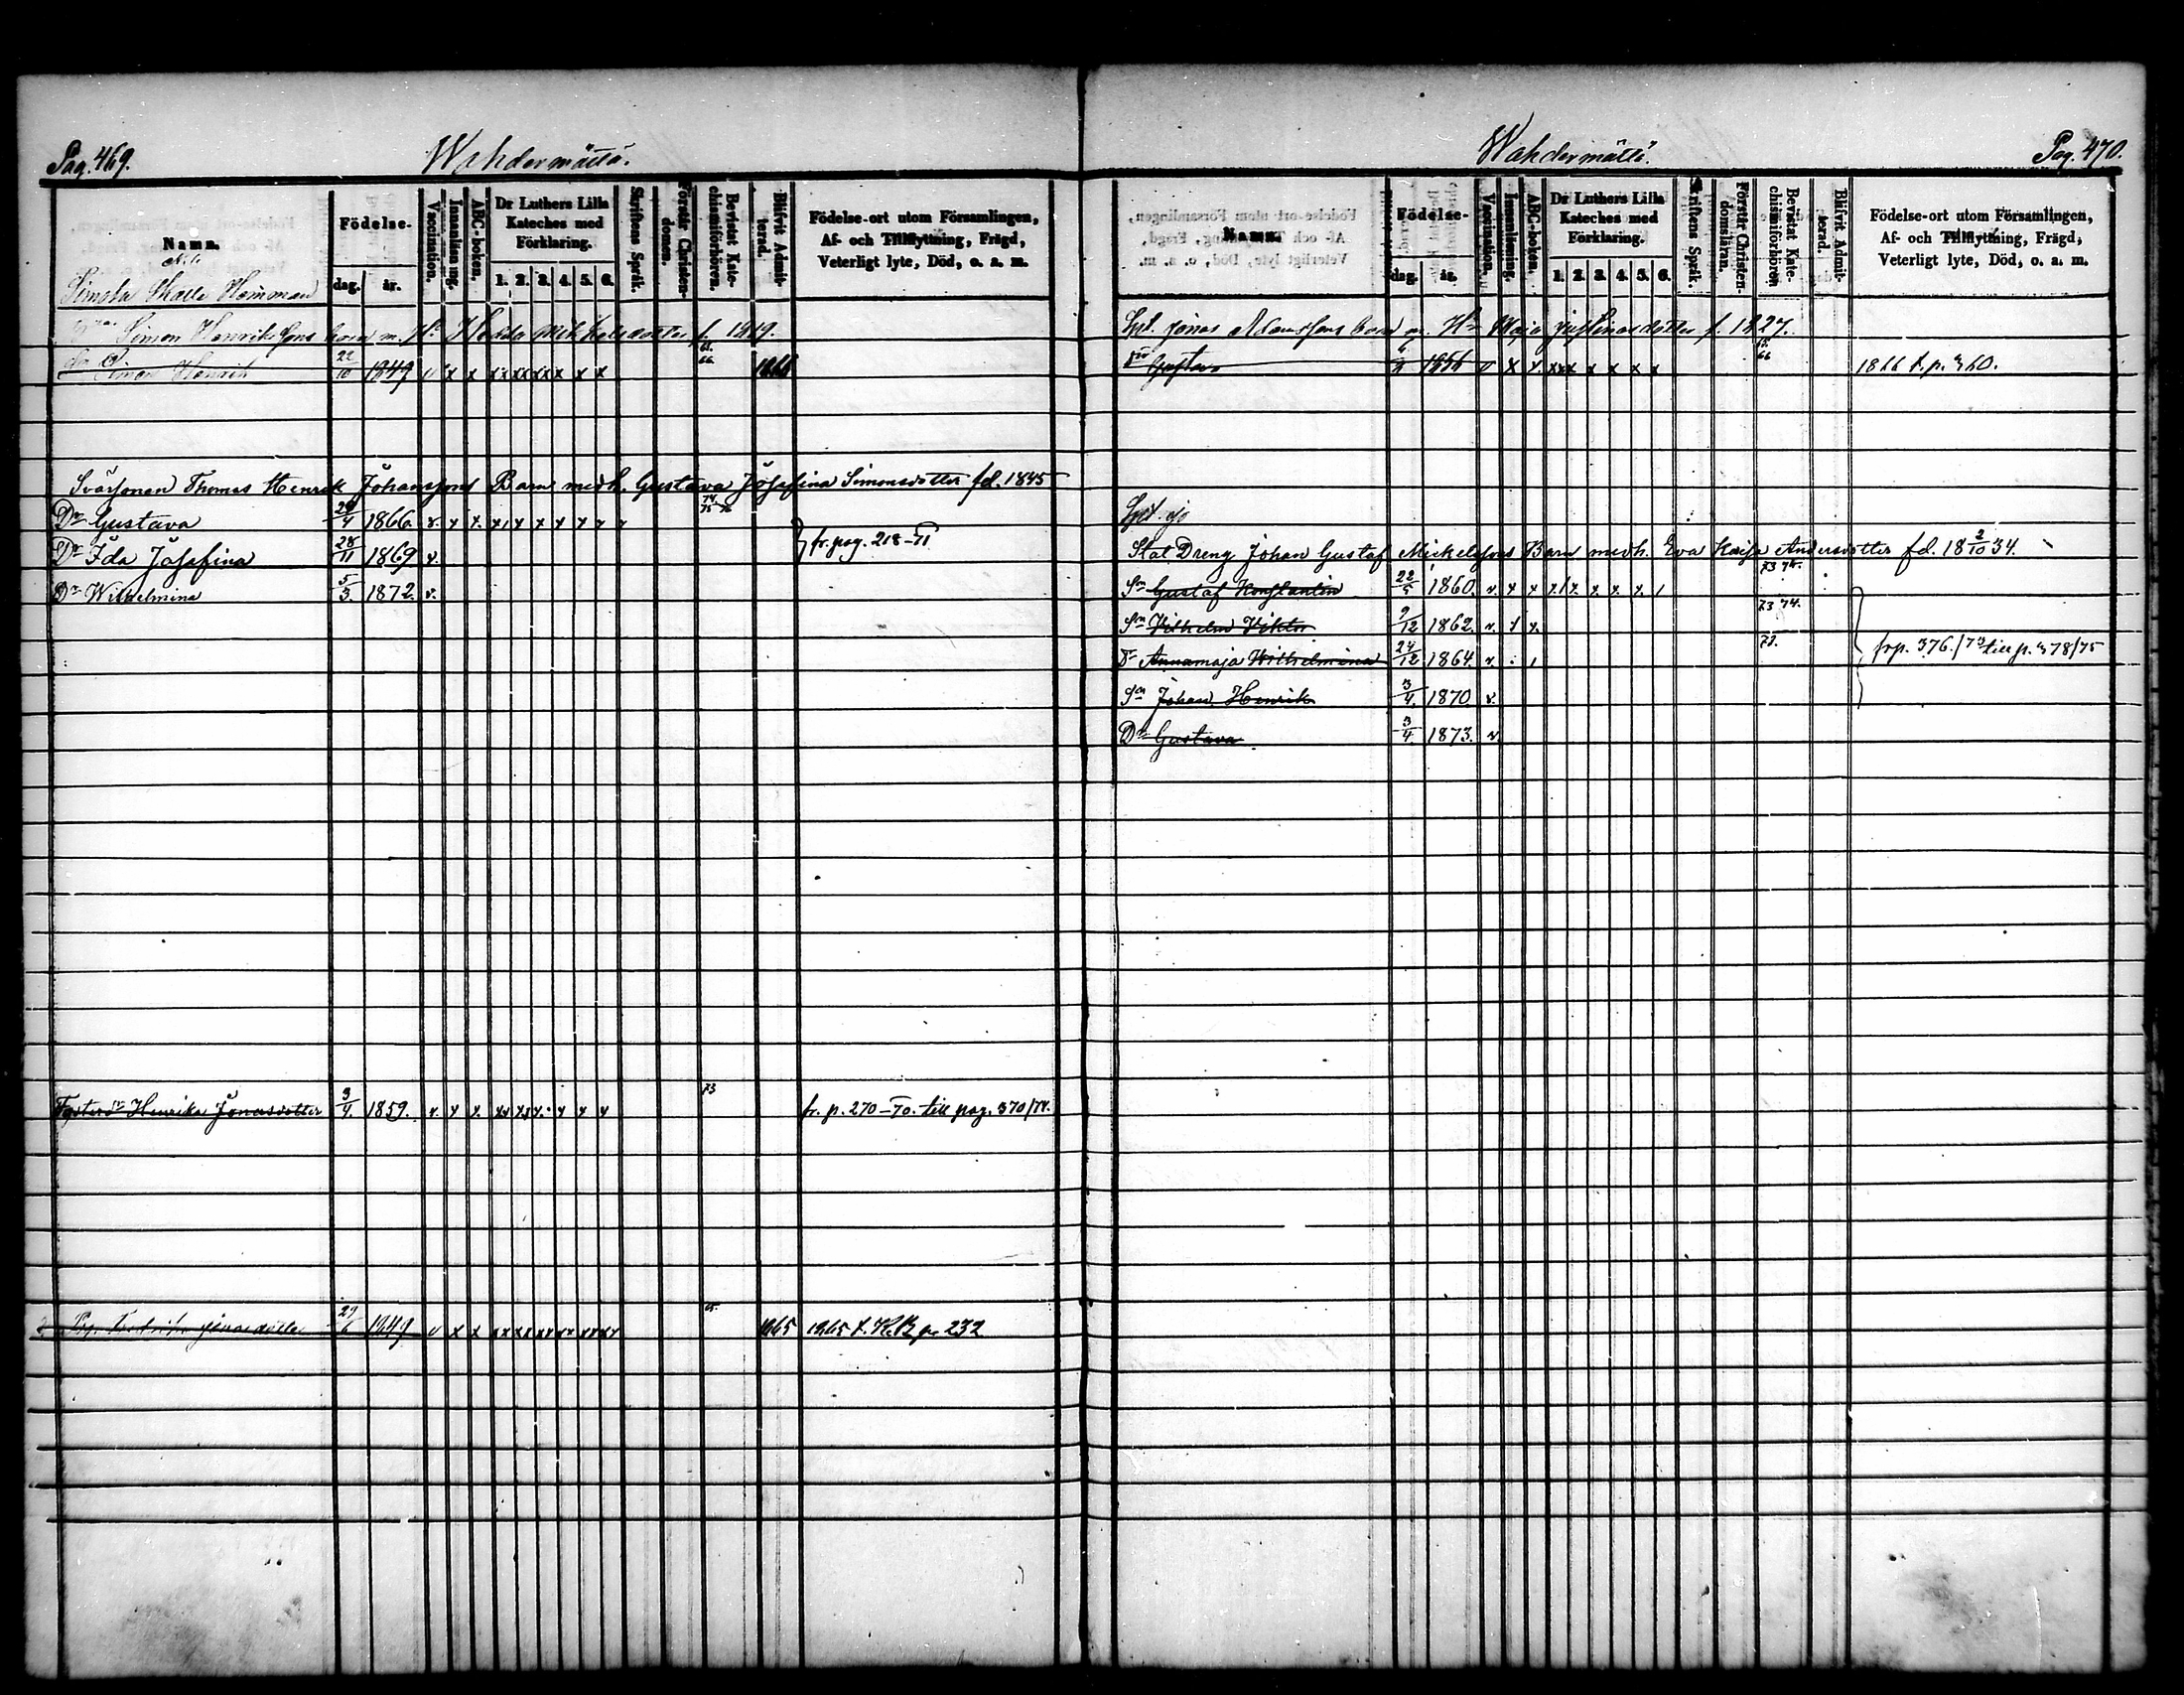 Pag. 469. Wahdermättä.
Namn.
Födelse-
dag. år.
Vaccination.
Innanläsning.
ABC-boken.
Dr Luthers Lilla Kateches med Förklaring.
1. 2. 3. 4. 5. 6.
Skriftens Språk.
Förstår Christendomen.
Bevistat Katechismiförhören.
Blifvit Admitterad.
Födelse-ort utom Församlingen, Af- och Tillflyttning, Frägd, Veterligt lyte, Död, o. a. m.
Simola Skatte Hemman
Simon Henrikssons barn m. H. Hedda Mikkelsdotter f. 1819.
Simon Henrik 22/10 1849 v x x xx xx xx x x x 65. 66. 1866
Svärsonen Thomas Henrik Johanssons Barn med h. Gustava Josefina Simonsdotter fd. 1845
Dr Gustava 29/4 1866. v. x x. x x x x x x x 74. 75 76
Dr Ida Josefina 28/11 1869 v. fr. pag. 218-71
Dr Wilhelmina 5/3. 1872. v.
Fosterdr Henrika Jonasdotter 3/4. 1859. v. x x. x x x x x x 73 fr. p. 270-70. till pag. 370/74.
Jonasdotter 29/6 1849 v x x xx xx xx xx xx xx 65. 1865 1865 t. K.B p. 232
Pag. 470. Wahdermättä.
Namn.
Födelse-
dag. år.
Vaccination.
Innanläsning.
ABC-boken.
Dr Luthers Lilla Kateches med Förklaring.
1. 2. 3. 4. 5. 6.
Skriftens Språk.
Förstår Christendomsläran.
Bevistat Katechismiförhören.
Blifvit Admitterad.
Födelse-ort utom Församlingen, Af- och Tillflyttning, Frägd, Veterligt lyte, Död, o. a. m.
Spl. Jonas Adamssons barn m. H. Maja Justinasdotter f. 1827.
Gustav 1856 v x x xxx x x x x 65. 66 1866 t. p. 360.
Spl. ejo
Stat Dreng Johan Gustaf Mickelssons Barn med h. Eva Kaisa Andersdotter fd. 18 2/10 34.
Sn Gustaf Konstantin 22/5 1860. v. x x x/x. x. x. x. / 73 74.
Sn Vilhelm Viktor 9/12 1862. v. x x. 73 74.
Dr Annamaja Wilhelmina 24/12 1864. v. 73. frp. 376./73 till p. 378/75
Sn Johan Henrik 3/4. 1870 v.
Dr Gustava 3/4. 1873. v.